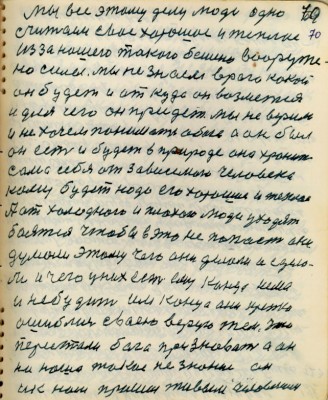 мы все этому делу люди одно 70
считаем свое хорошое и теплае 70
Из за нашего такого бешено вооруже-
но силы. мы не знаем врага какой
он будет и от куда он возметься
и для чего он придет. мы не верим
и не хочем понимать обога а он был
он есть и будет в природе она хронит
сама себя от зависемого человека
кому будет надо его хорошие и теплае
А от холодного и плохого люди уходят
боятся чтобы в это не попасть они
думали этому чего они делали и сдела-
ли и чего у них есть ему Конца нема
и небудить им Конца они
ошиблись своею верую тем. Что
перестали бога призноват а он
на наша такое не знание он
ик нам пришел живым человеком